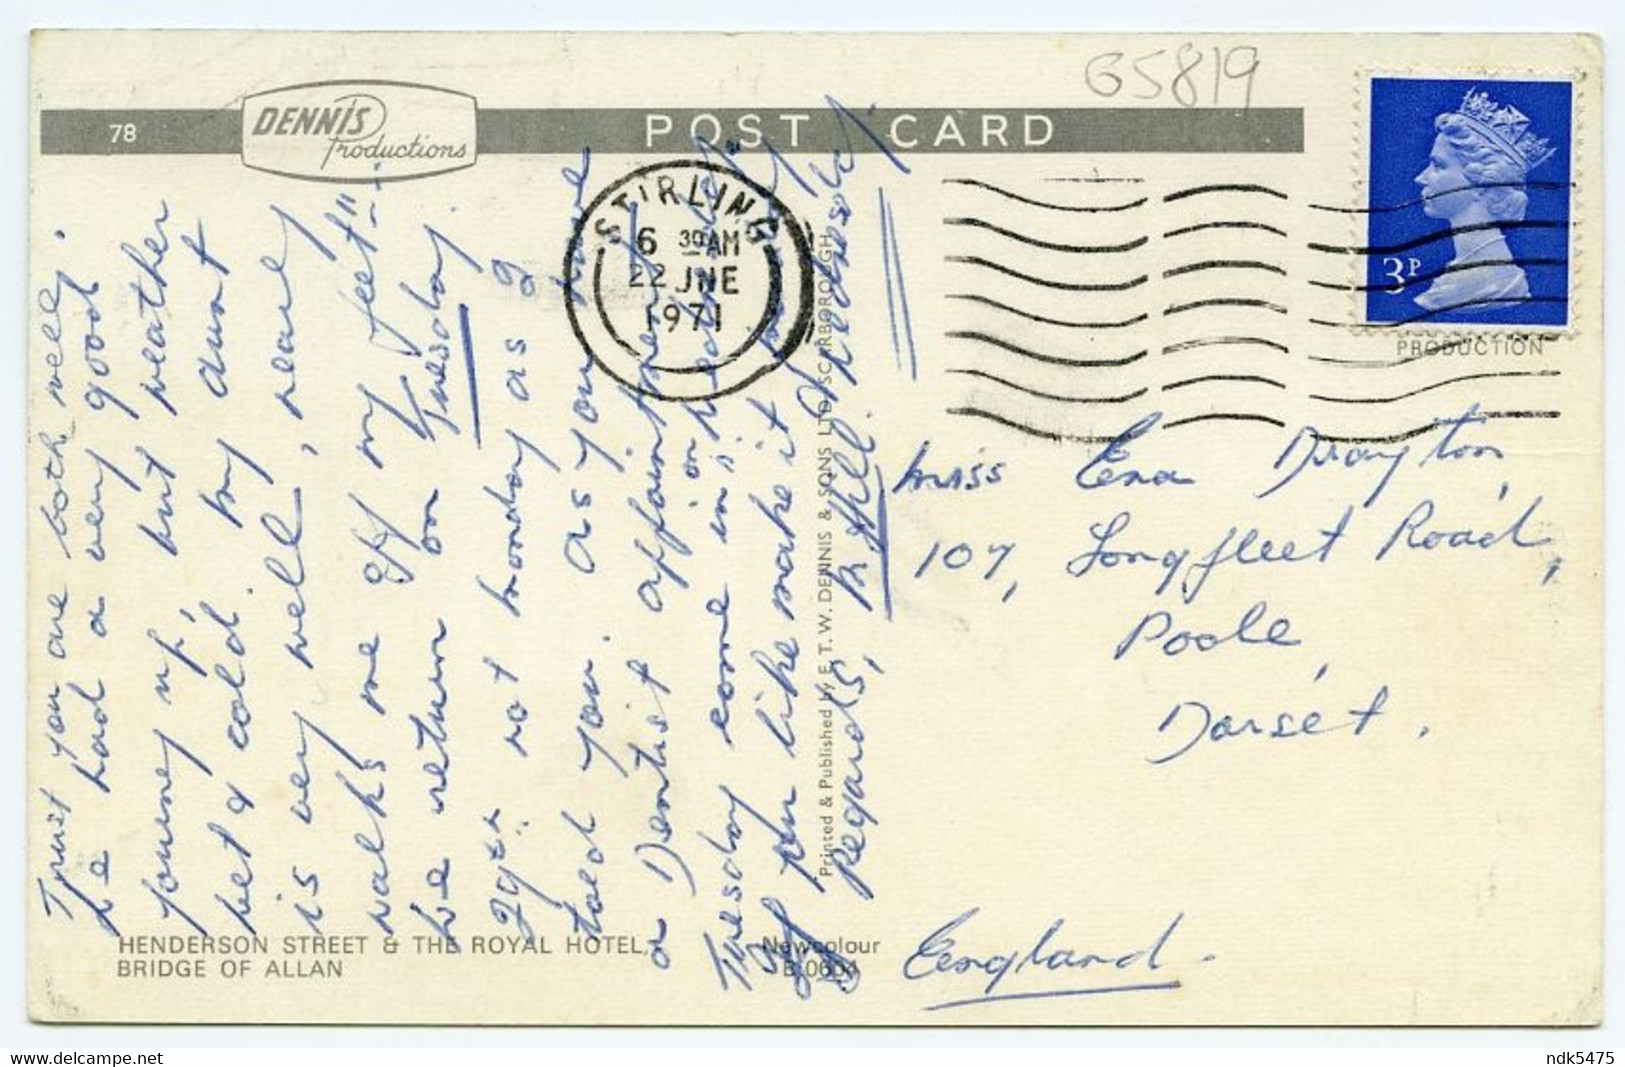 G5819
78
DENNIS
Productions
POST CARD
STIRLING
6 30 AM
22 JNE
1971
3P
PRODUCTION
Trust you are both well.
We had a very good
journey up, but weather
wet & cold. My aunt
is very well, near
walks me off my feet"
We return on Tuesday
29th not monday as I
told you. As you have
a Dentist appointment
Tuesday come in on Wednesday
if you like make it
Regards,
Miss Ena Drayton,
107, Longfleet Road,
Poole,
Dorset.
England.
Printed & Published by E. T. W. DENNIS & SONS LTD SCARBOROUGH
HENDERSON STREET & THE ROYAL HOTEL,
BRIDGE OF ALLAN
Newcolour
B.0604
delcampe.net
ndk5475